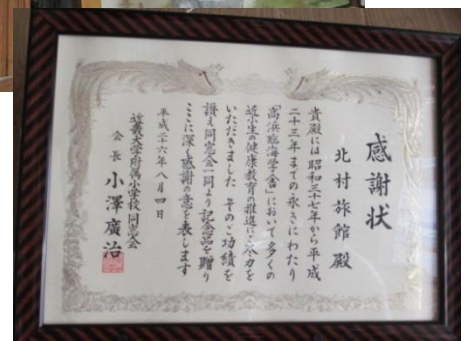 感謝状
北村旅館 殿
貴殿には昭和三十七年から平成
二十三年までの永きにわたり
「高浜臨海学舎」において多くの
近小生の健康教育の推進にご尽力を
いただきました そのご功績を
讃え同窓会一同より記念品を贈り
ここに深く感謝の意を表します
平成二十六年八月四日
近畿大学附属小学校同窓会
会長 小澤廣治